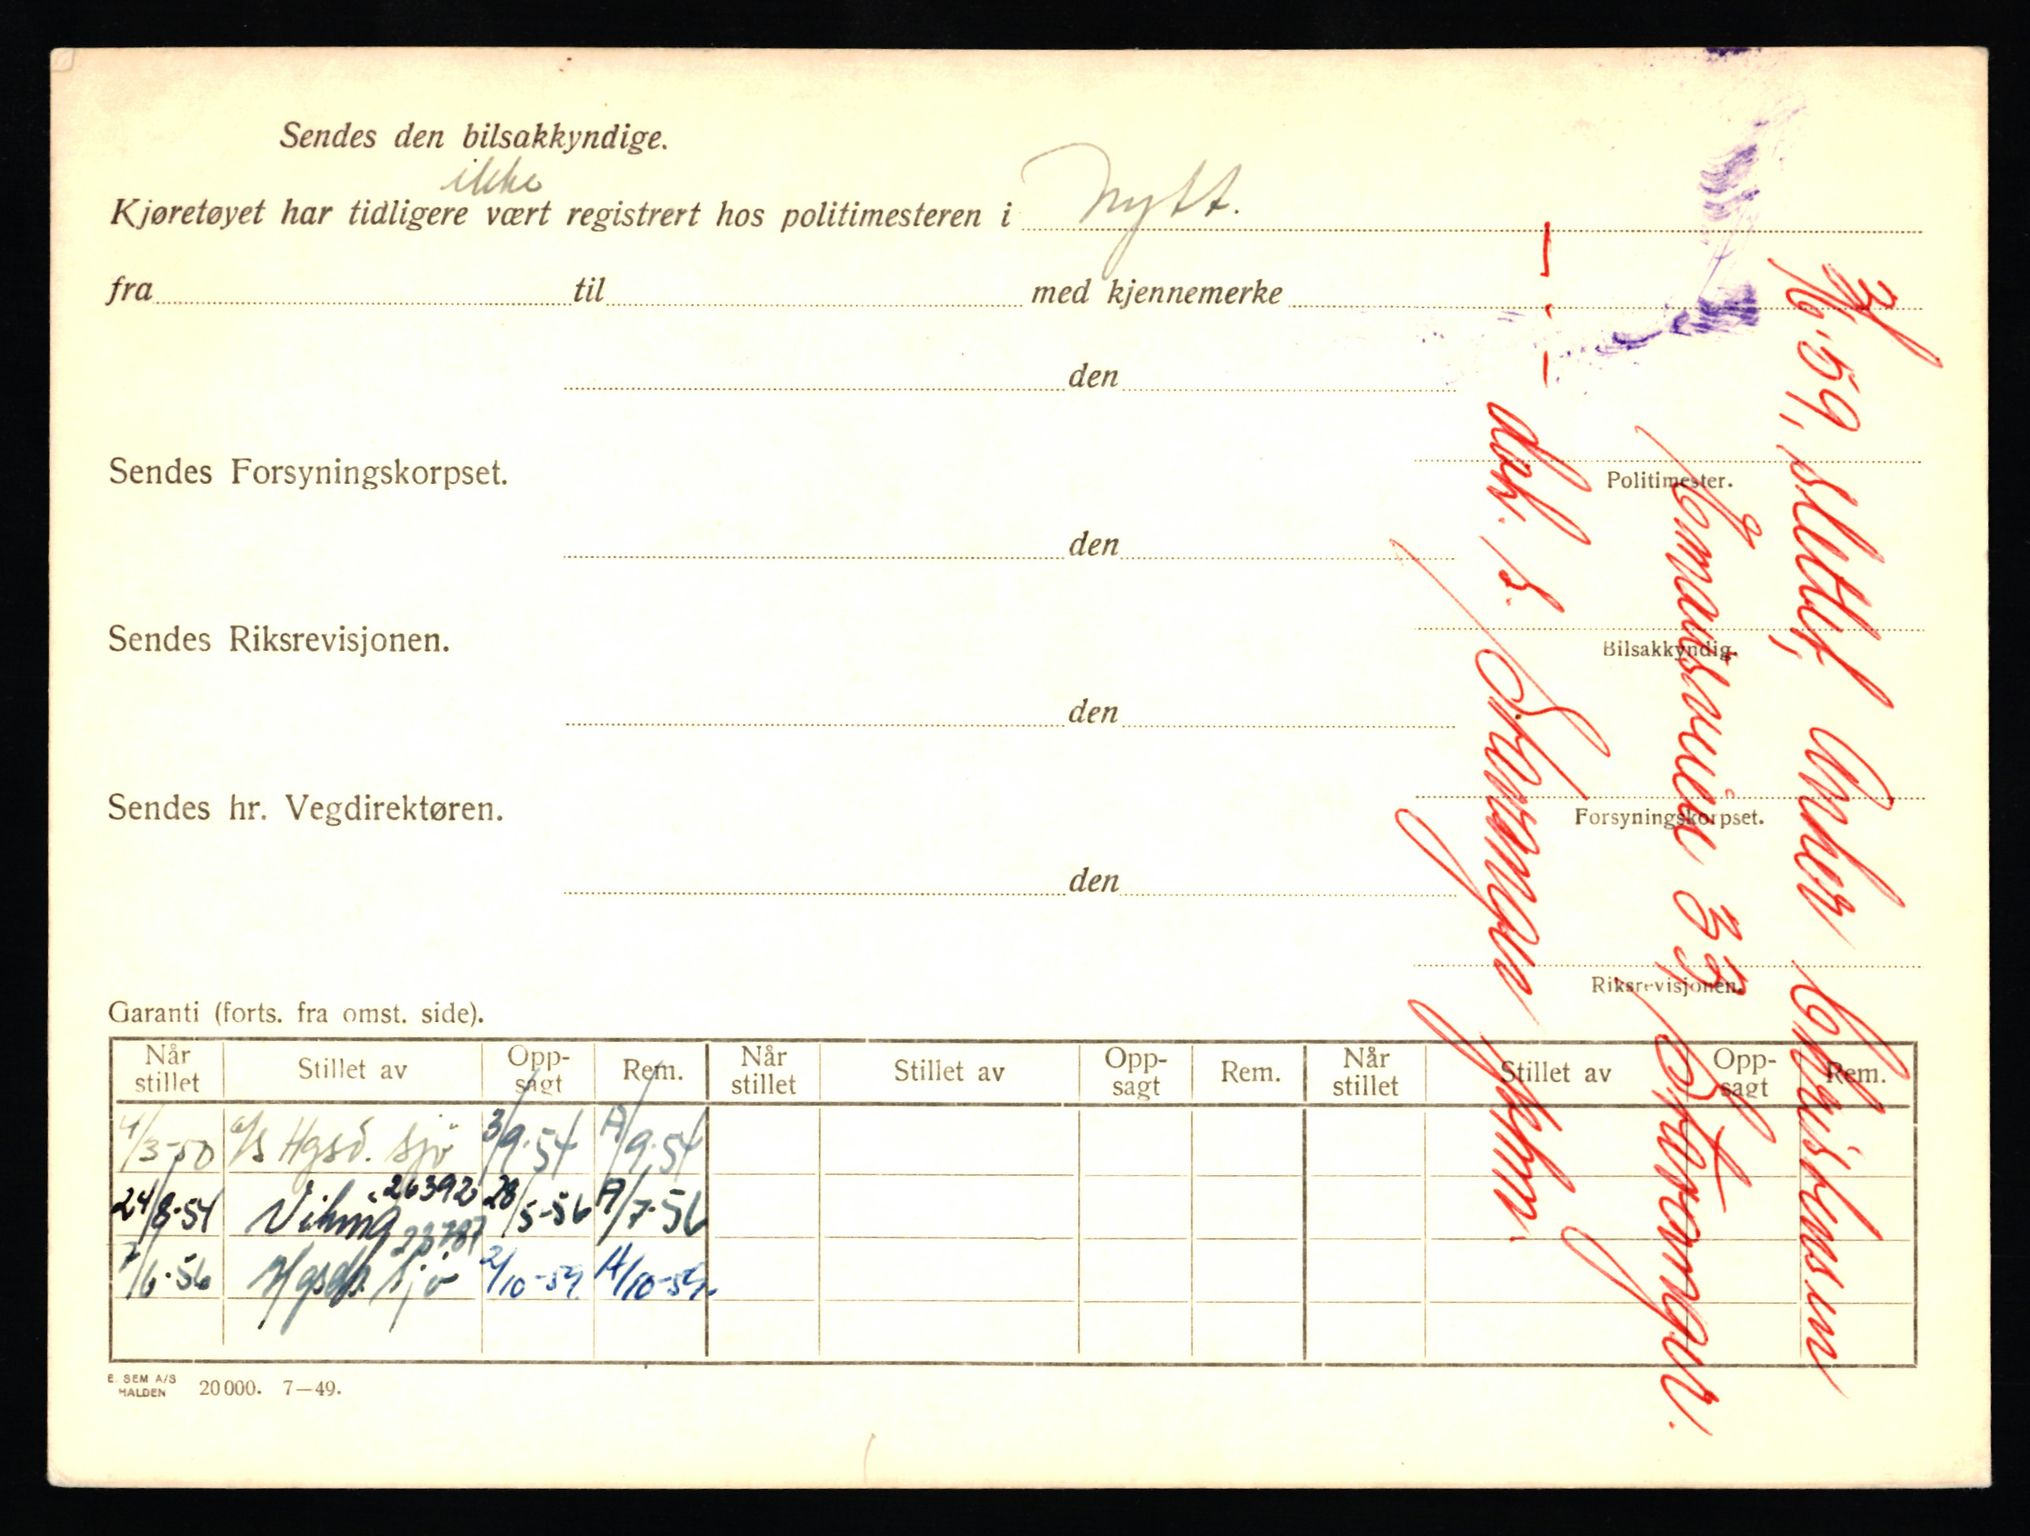 Sendes den bilsakkyndige.
ikke
Kjøretøyet har tidligere vært registrert hos politimesteren i Nytt.
fra til med kjennemerke
den
Politimester.
Sendes Forsyningskorpset.
den
Bilsakkyndig.
Sendes Riksrevisjonen.
den
Forsyningskorpset.
Sendes hr. Vegdirektøren.
den
Riksrevisjonen.
Garanti (forts. fra omst. side).
Når stillet Stillet av Opp-sagt Rem. Når stillet Stillet av Opp-sagt Rem. Når stillet Stillet av Opp-sagt Rem.
4/3-50 a/s Hgsd. Sjø 3/9.54 A/9.54
24/8.54 Viking 26392 28/5-56 A/7.56
7/6.56 Hgsds. Sjø 23787 2/10-59 A/10-59.
E. SEM A/S
HALDEN 20000. 7—49.
10.59, slettet, Christensen
33 Stavanger.
— . — dob. i Stavanger